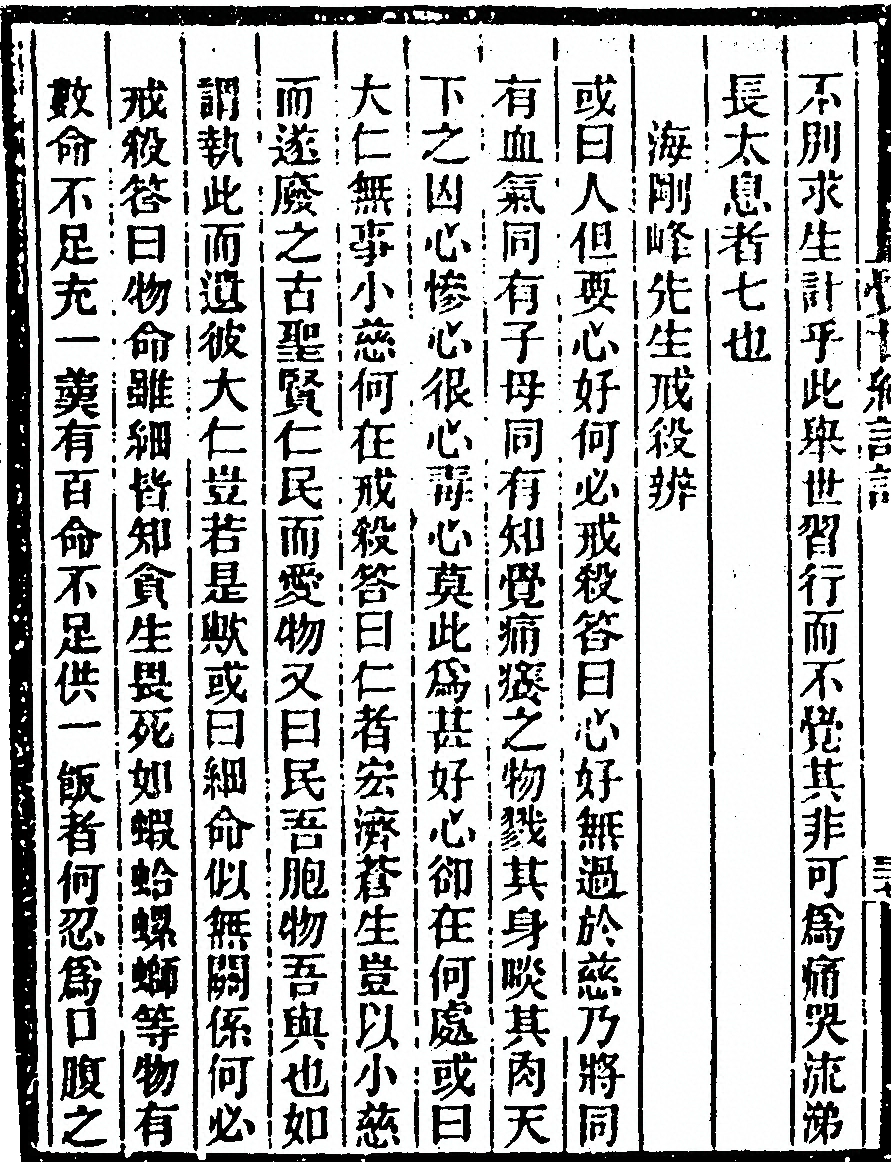 不別求生計乎此舉世習行而不覺其非可爲痛哭流涕
長太息者七也
海剛峰先生戒殺辨
或曰人但要心好何必戒殺答曰心好無過於慈乃將同
有血氣同有子母同有知覺痛癢之物戮其身啖其肉天
下之凶心慘心很心毒心莫此爲甚好心卻在何處或曰
大仁無事小慈何在戒殺答曰仁者宏濟蒼生豈以小慈
而遂廢之古聖賢仁民而愛物又曰民吾胞物吾與也如
謂執此而遺彼大仁豈若是歟或曰細命似無關係何必
戒殺答曰物命雖細皆知貪生畏死如蝦蛤螺螄等物有
數命不足充一羹有百命不足供一飯者何忍爲口腹之